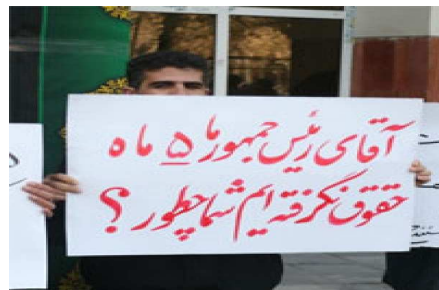 آقای رئیس جمهور ما ۵ ماه
حقوق نگرفته ایم شما چطور ؟